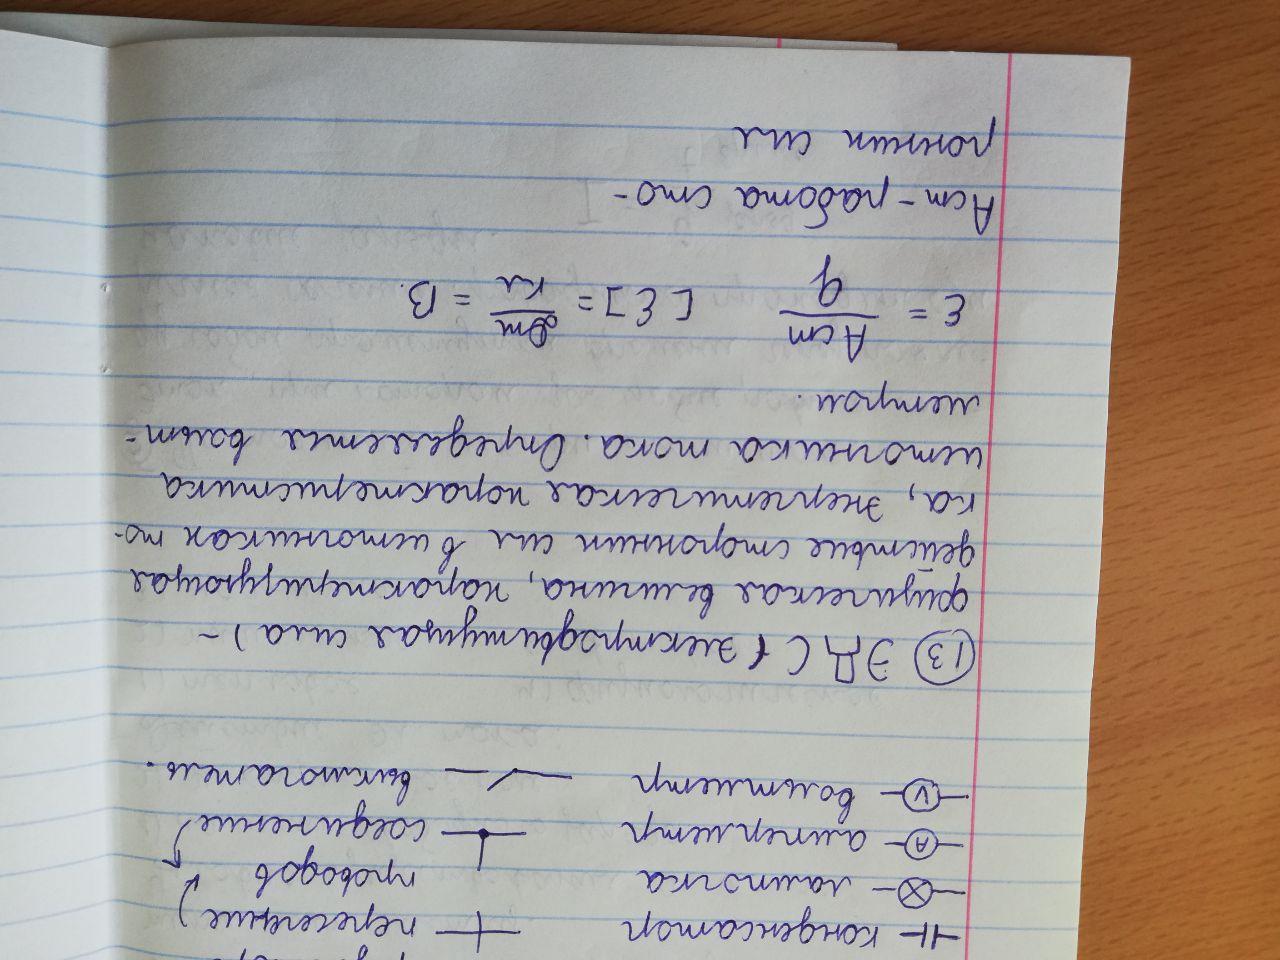 конденсатор
лампочка
A амперметр
V вольтметр
пересечение
проводов
соединение
выключатель.
13 ЭДС (электродвижущая сила) –
физическая величина, характеризующая
действие сторонних сил в источниках то-
ка, Энергетическая характеристика
источника тока. Определяется вольт-
метром.
ε = Aст / q [ε] = Дж / Кл = В.
Аст – работа сто-
ронних сил